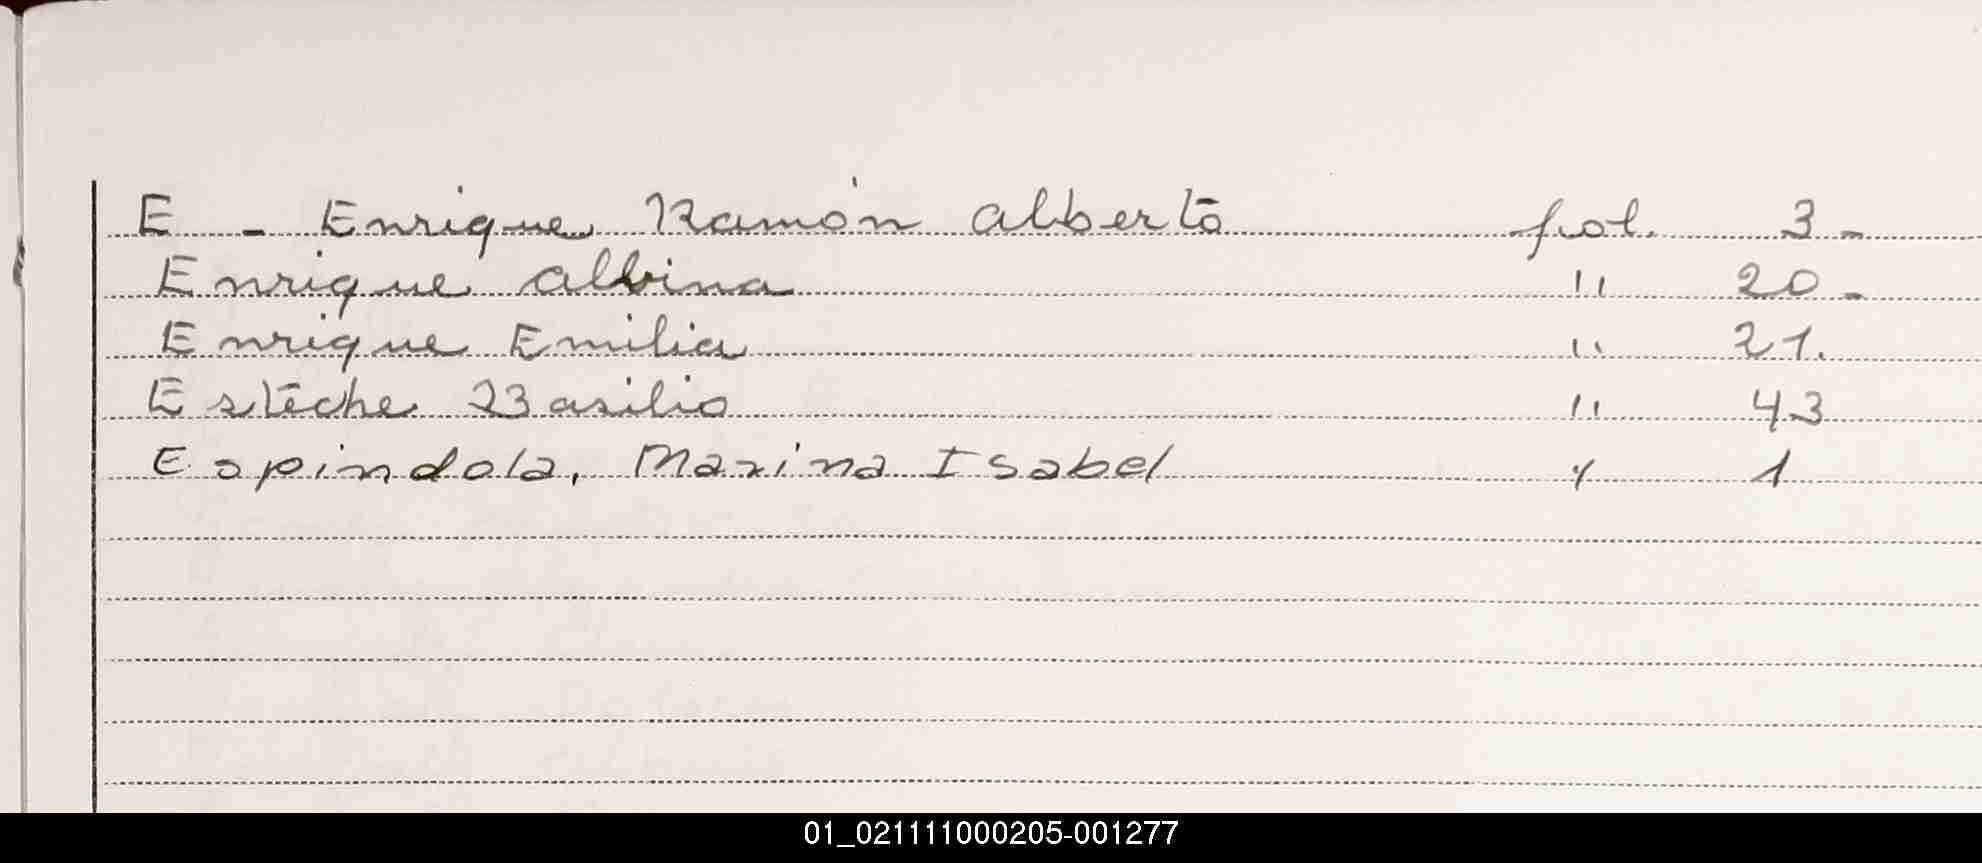 E - Enrique Ramón Alberto fol. 3-
Enrique Albina " 20-
Enrique Emilia " 21.
Esteche Basilio " 43
Espindola, Maxina Isabel 1
01_021111000205-001277